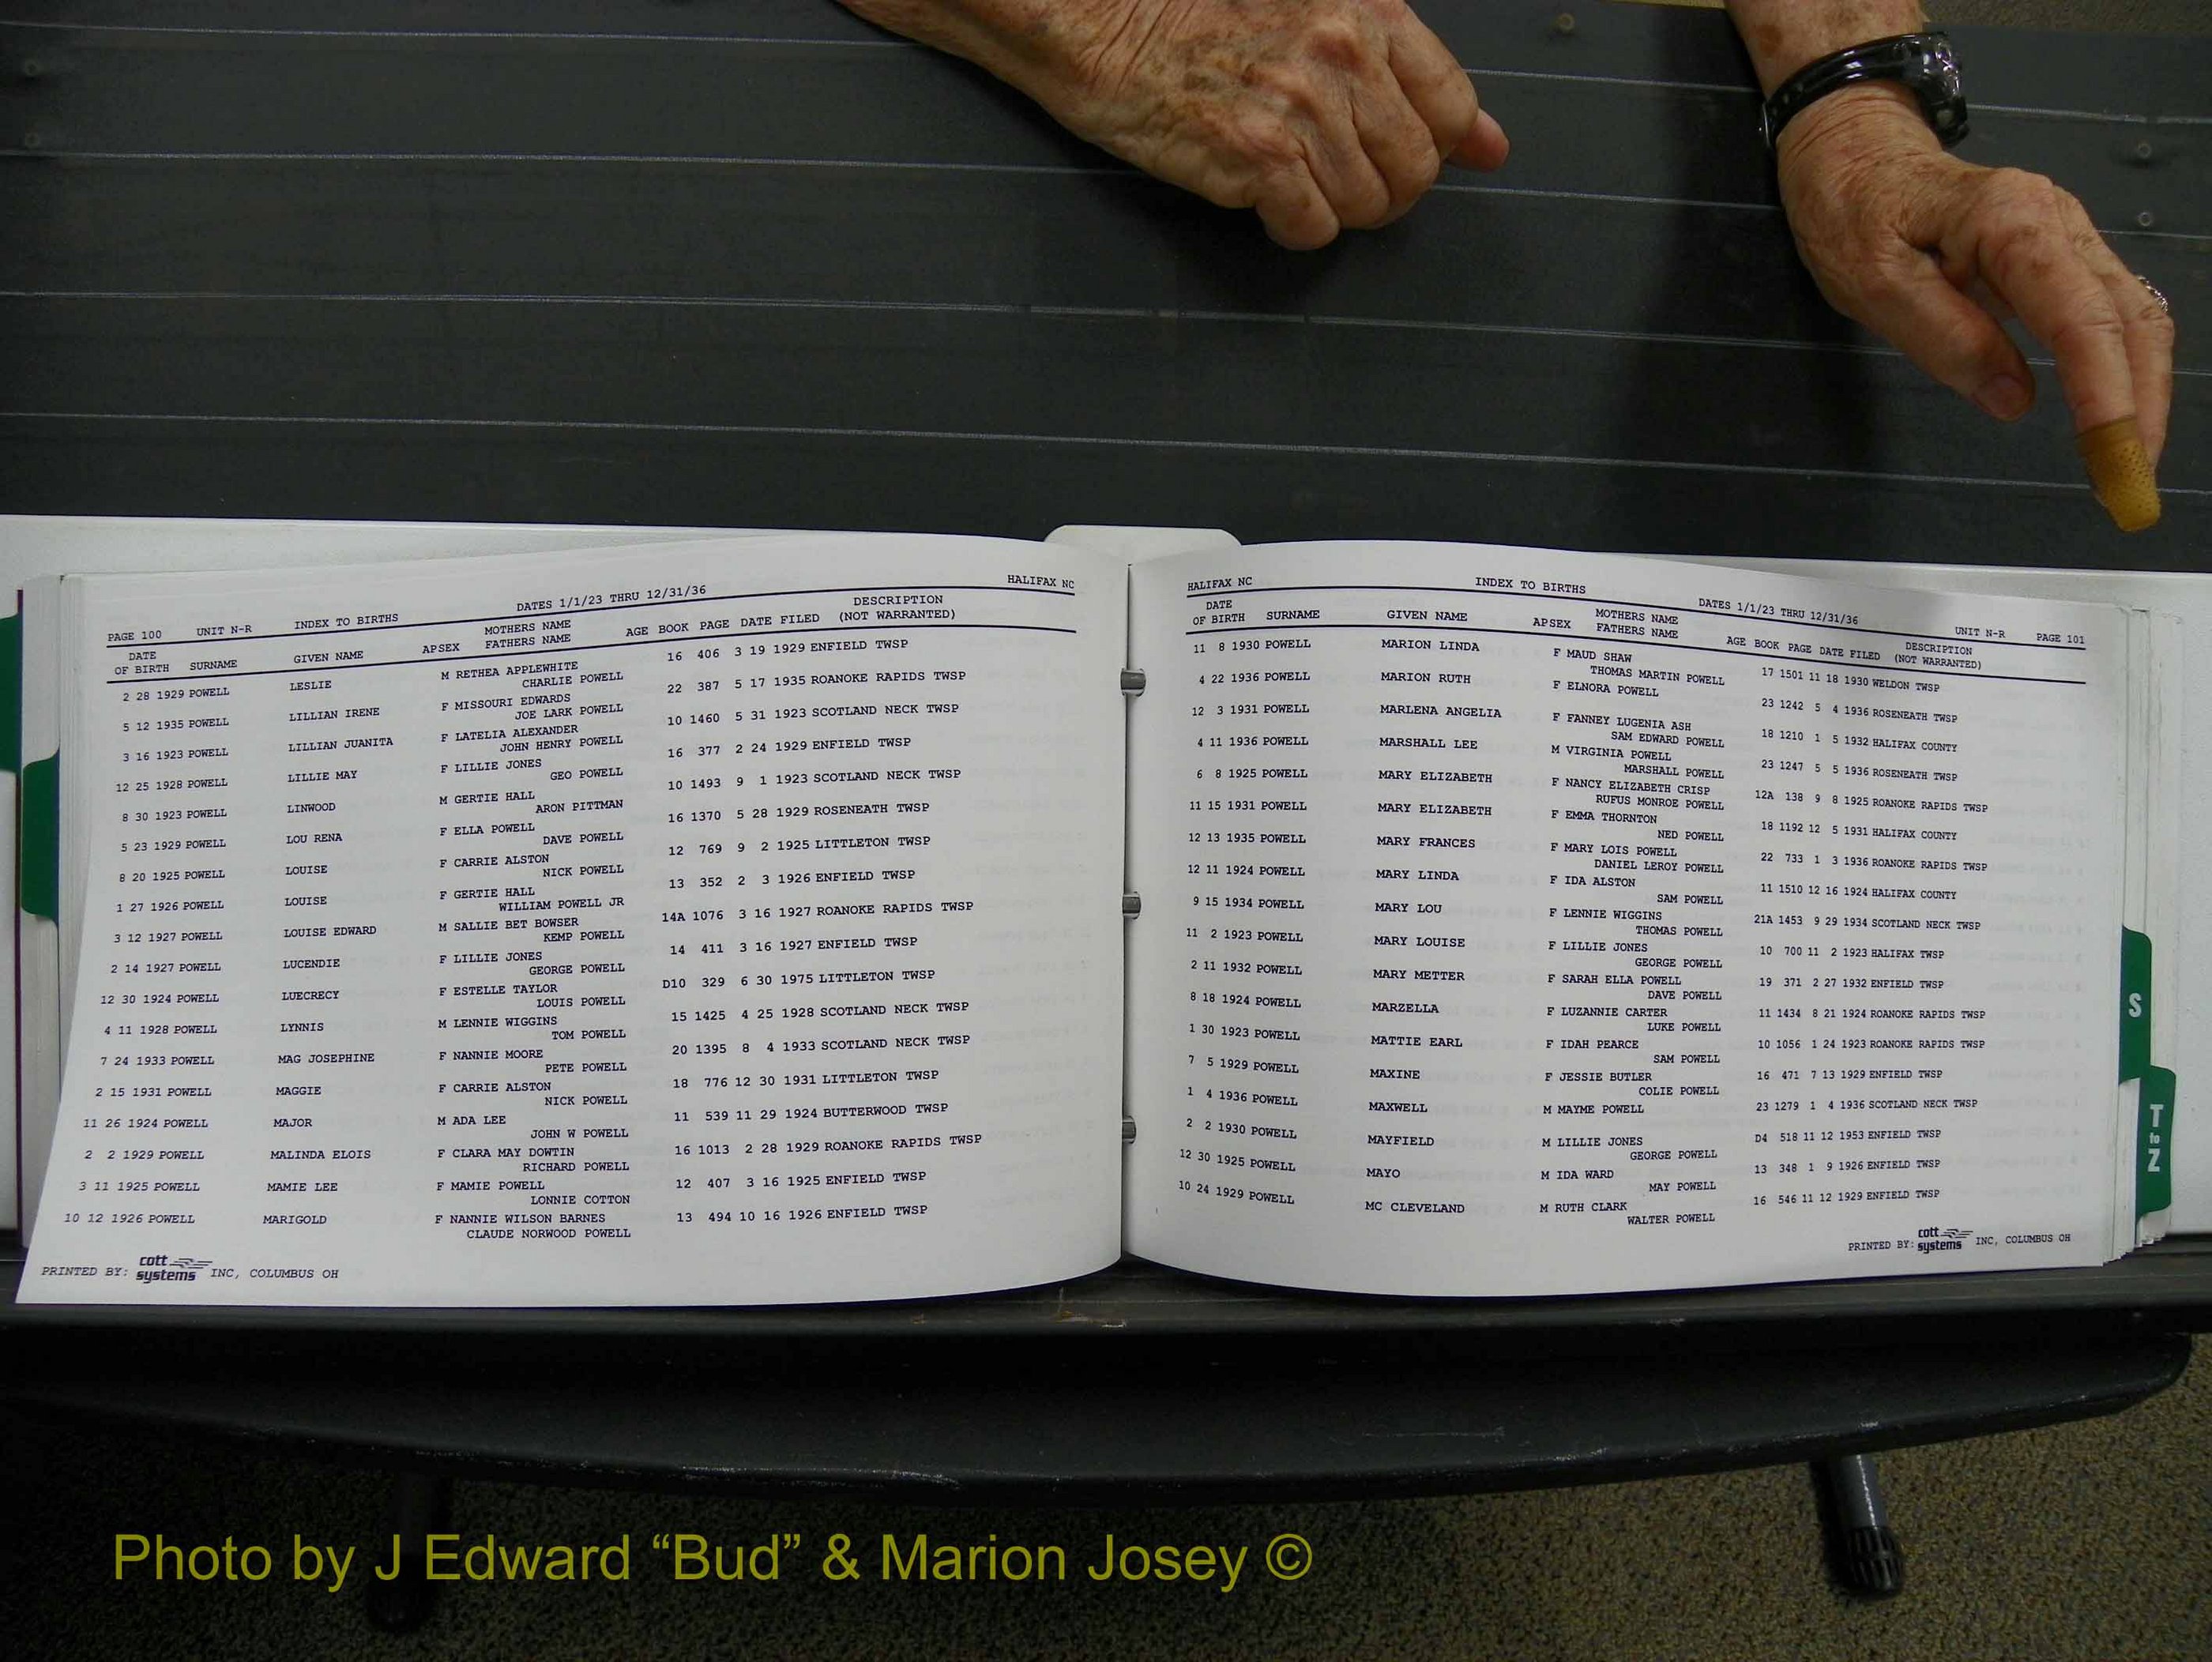 PAGE 100 UNIT N-R INDEX TO BIRTHS DATES 1/1/23 THRU 12/31/36 HALIFAX NC
DATE OF BIRTH SURNAME GIVEN NAME AP SEX MOTHERS NAME FATHERS NAME AGE BOOK PAGE DATE FILED DESCRIPTION (NOT WARRANTED)
2 28 1929 POWELL LESLIE M RETHEA APPLEWHITE 16 406 3 19 1929 ENFIELD TWSP
CHARLIE POWELL
5 12 1935 POWELL LILLIAN IRENE F MISSOURI EDWARDS 22 387 5 17 1935 ROANOKE RAPIDS TWSP
JOE LARK POWELL
3 16 1923 POWELL LILLIAN JUANITA F LATELIA ALEXANDER 10 1460 5 31 1923 SCOTLAND NECK TWSP
JOHN HENRY POWELL
12 25 1928 POWELL LILLIE MAY F LILLIE JONES 16 377 2 24 1929 ENFIELD TWSP
GEO POWELL
8 30 1923 POWELL LINWOOD M GERTIE HALL 10 1493 9 1 1923 SCOTLAND NECK TWSP
ARON PITTMAN
5 23 1929 POWELL LOU RENA F ELLA POWELL 16 1370 5 28 1929 ROSENEATH TWSP
DAVE POWELL
8 20 1925 POWELL LOUISE F CARRIE ALSTON 12 769 9 2 1925 LITTLETON TWSP
NICK POWELL
1 27 1926 POWELL LOUISE F GERTIE HALL 13 352 2 3 1926 ENFIELD TWSP
WILLIAM POWELL JR
3 12 1927 POWELL LOUISE EDWARD M SALLIE BET BOWSER 14A 1076 3 16 1927 ROANOKE RAPIDS TWSP
KEMP POWELL
2 14 1927 POWELL LUCENDIE F LILLIE JONES 14 411 3 16 1927 ENFIELD TWSP
GEORGE POWELL
12 30 1924 POWELL LUECRECY F ESTELLE TAYLOR D10 329 6 30 1975 LITTLETON TWSP
LOUIS POWELL
4 11 1928 POWELL LYNNIS M LENNIE WIGGINS 15 1425 4 25 1928 SCOTLAND NECK TWSP
TOM POWELL
7 24 1933 POWELL MAG JOSEPHINE F NANNIE MOORE 20 1395 8 4 1933 SCOTLAND NECK TWSP
PETE POWELL
2 15 1931 POWELL MAGGIE F CARRIE ALSTON 18 776 12 30 1931 LITTLETON TWSP
NICK POWELL
11 26 1924 POWELL MAJOR M ADA LEE 11 539 11 29 1924 BUTTERWOOD TWSP
JOHN W POWELL
2 2 1929 POWELL MALINDA ELOIS F CLARA MAY DOWTIN 16 1013 2 28 1929 ROANOKE RAPIDS TWSP
RICHARD POWELL
3 11 1925 POWELL MAMIE LEE F MAMIE POWELL 12 407 3 16 1925 ENFIELD TWSP
LONNIE COTTON
10 12 1926 POWELL MARIGOLD F NANNIE WILSON BARNES 13 494 10 16 1926 ENFIELD TWSP
CLAUDE NORWOOD POWELL
PRINTED BY: cott systems INC, COLUMBUS OH
HALIFAX NC INDEX TO BIRTHS DATES 1/1/23 THRU 12/31/36 UNIT N-R PAGE 101
DATE OF BIRTH SURNAME GIVEN NAME AP SEX MOTHERS NAME FATHERS NAME AGE BOOK PAGE DATE FILED DESCRIPTION (NOT WARRANTED)
11 8 1930 POWELL MARION LINDA F MAUD SHAW 17 1501 11 18 1930 WELDON TWSP
THOMAS MARTIN POWELL
4 22 1936 POWELL MARION RUTH F ELNORA POWELL 23 1242 5 4 1936 ROSENEATH TWSP
12 3 1931 POWELL MARLENA ANGELIA F FANNEY LUGENIA ASH 18 1210 1 5 1932 HALIFAX COUNTY
SAM EDWARD POWELL
4 11 1936 POWELL MARSHALL LEE M VIRGINIA POWELL 23 1247 5 5 1936 ROSENEATH TWSP
MARSHALL POWELL
6 8 1925 POWELL MARY ELIZABETH F NANCY ELIZABETH CRISP 12A 138 9 8 1925 ROANOKE RAPIDS TWSP
RUFUS MONROE POWELL
11 15 1931 POWELL MARY ELIZABETH F EMMA THORNTON 18 1192 12 5 1931 HALIFAX COUNTY
NED POWELL
12 13 1935 POWELL MARY FRANCES F MARY LOIS POWELL 22 733 1 3 1936 ROANOKE RAPIDS TWSP
DANIEL LEROY POWELL
12 11 1924 POWELL MARY LINDA F IDA ALSTON 11 1510 12 16 1924 HALIFAX COUNTY
SAM POWELL
9 15 1934 POWELL MARY LOU F LENNIE WIGGINS 21A 1453 9 29 1934 SCOTLAND NECK TWSP
THOMAS POWELL
11 2 1923 POWELL MARY LOUISE F LILLIE JONES 10 700 11 2 1923 HALIFAX TWSP
GEORGE POWELL
2 11 1932 POWELL MARY METTER F SARAH ELLA POWELL 19 371 2 27 1932 ENFIELD TWSP
DAVE POWELL
8 18 1924 POWELL MARZELLA F LUZANNIE CARTER 11 1434 8 21 1924 ROANOKE RAPIDS TWSP
LUKE POWELL
1 30 1923 POWELL MATTIE EARL F IDAH PEARCE 10 1056 1 24 1923 ROANOKE RAPIDS TWSP
SAM POWELL
7 5 1929 POWELL MAXINE F JESSIE BUTLER 16 471 7 13 1929 ENFIELD TWSP
COLIE POWELL
1 4 1936 POWELL MAXWELL M MAYME POWELL 23 1279 1 4 1936 SCOTLAND NECK TWSP
2 2 1930 POWELL MAYFIELD M LILLIE JONES D4 518 11 12 1953 ENFIELD TWSP
GEORGE POWELL
12 30 1925 POWELL MAYO M IDA WARD 13 348 1 9 1926 ENFIELD TWSP
MAY POWELL
10 24 1929 POWELL MC CLEVELAND M RUTH CLARK 16 546 11 12 1929 ENFIELD TWSP
WALTER POWELL
PRINTED BY: cott systems INC, COLUMBUS OH
S
T
to
Z
Photo by J Edward “Bud” & Marion Josey ©